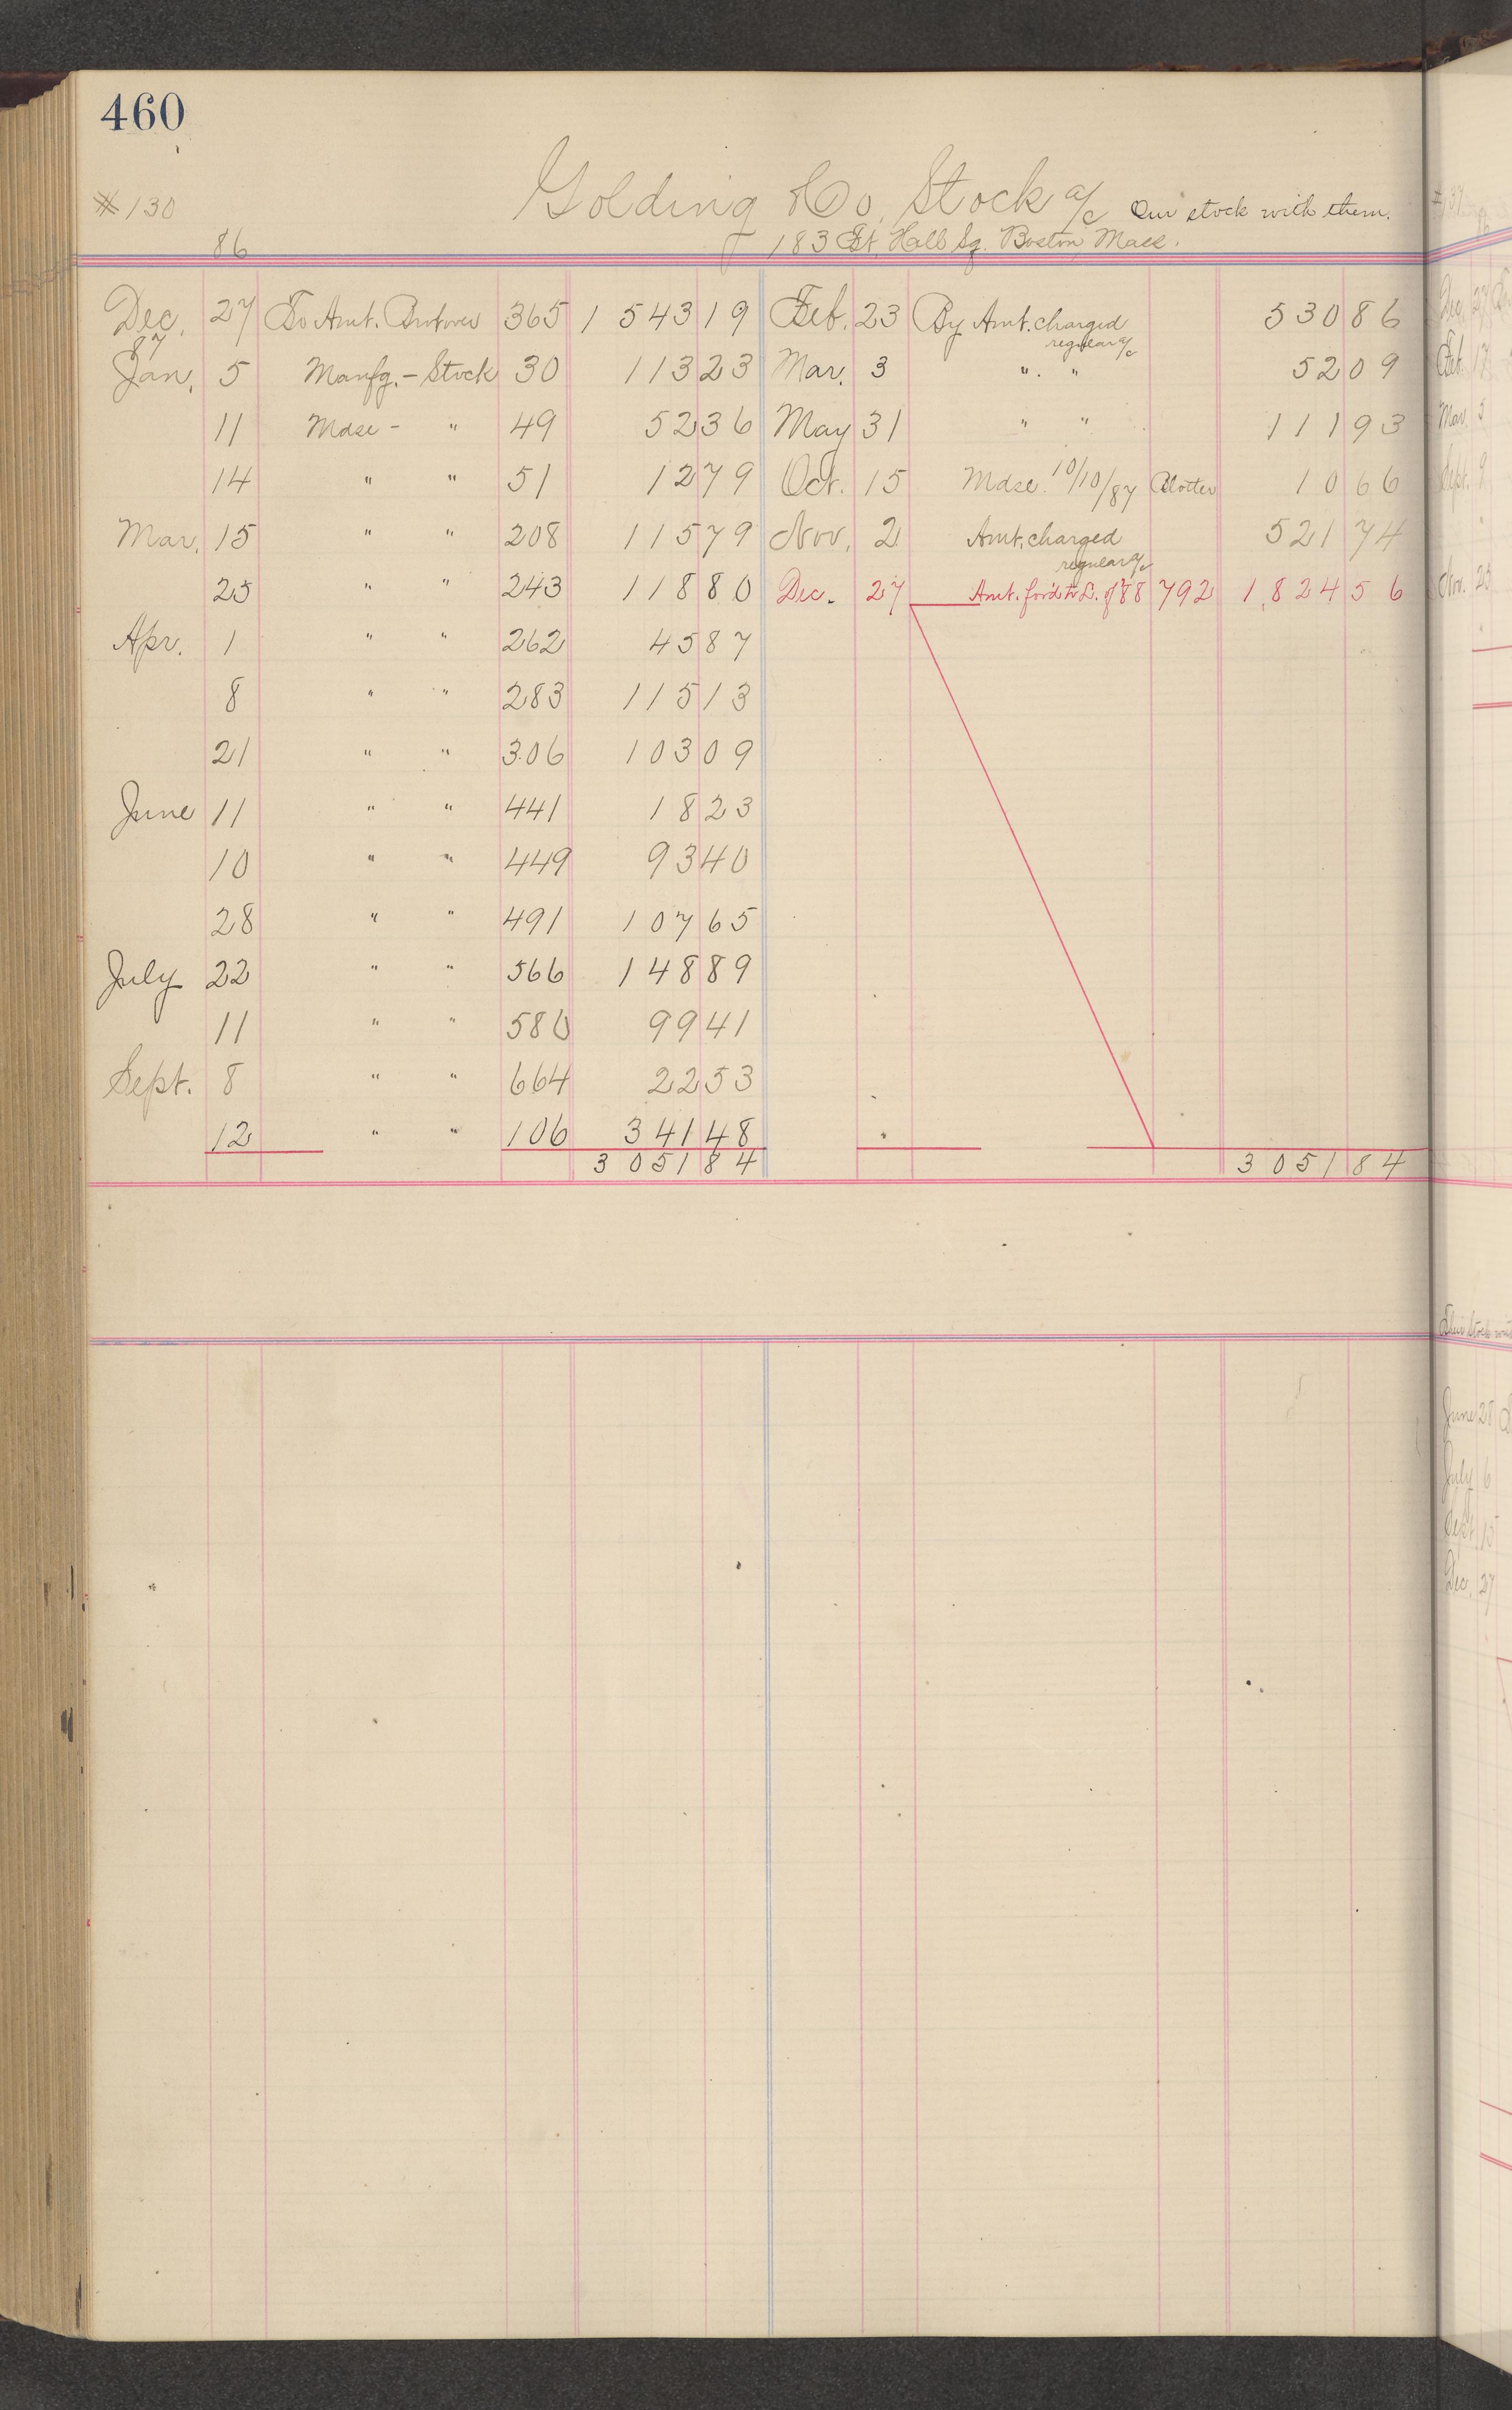 460
# 130
Golding & Co. Stock a/c Our stock with them.
183 Ft. Hall Sq. Boston, Mass.
86
Dec. 27 To Amt. Brot over 365 1 543 19 Feb. 23 By Amt. charged regular a/c 530 86
87
Jan. 5 Manfg. - Stock 30 113 23 Mar. 3 " " 52 09
11 Mdse - " 49 52 36 May 31 " " 111 93
14 " " 51 12 79 Oct. 15 Mdse. 10/10/87 Blotter 10 66
Mar. 15 " " 208 115 79 Nov. 2 Amt. charged regular a/c 521 74
25 " " 243 118 80 Dec. 27 Amt. for'd to L. of 88 792 1,824 56
Apr. 1 " " 262 45 87
8 " " 283 115 13
21 " " 306 103 09
June 11 " " 441 18 23
10 " " 449 93 40
28 " " 491 107 65
July 22 " " 566 148 89
11 " " 580 99 41
Sept. 8 " " 664 22 53
12 " " 106 341 48
3 051 84 3 051 84
Dec. 27
Feb. 17
Mar. 5
Sept. 9
Nov. 25
June 28
July 6
Sept. 15
Dec. 27